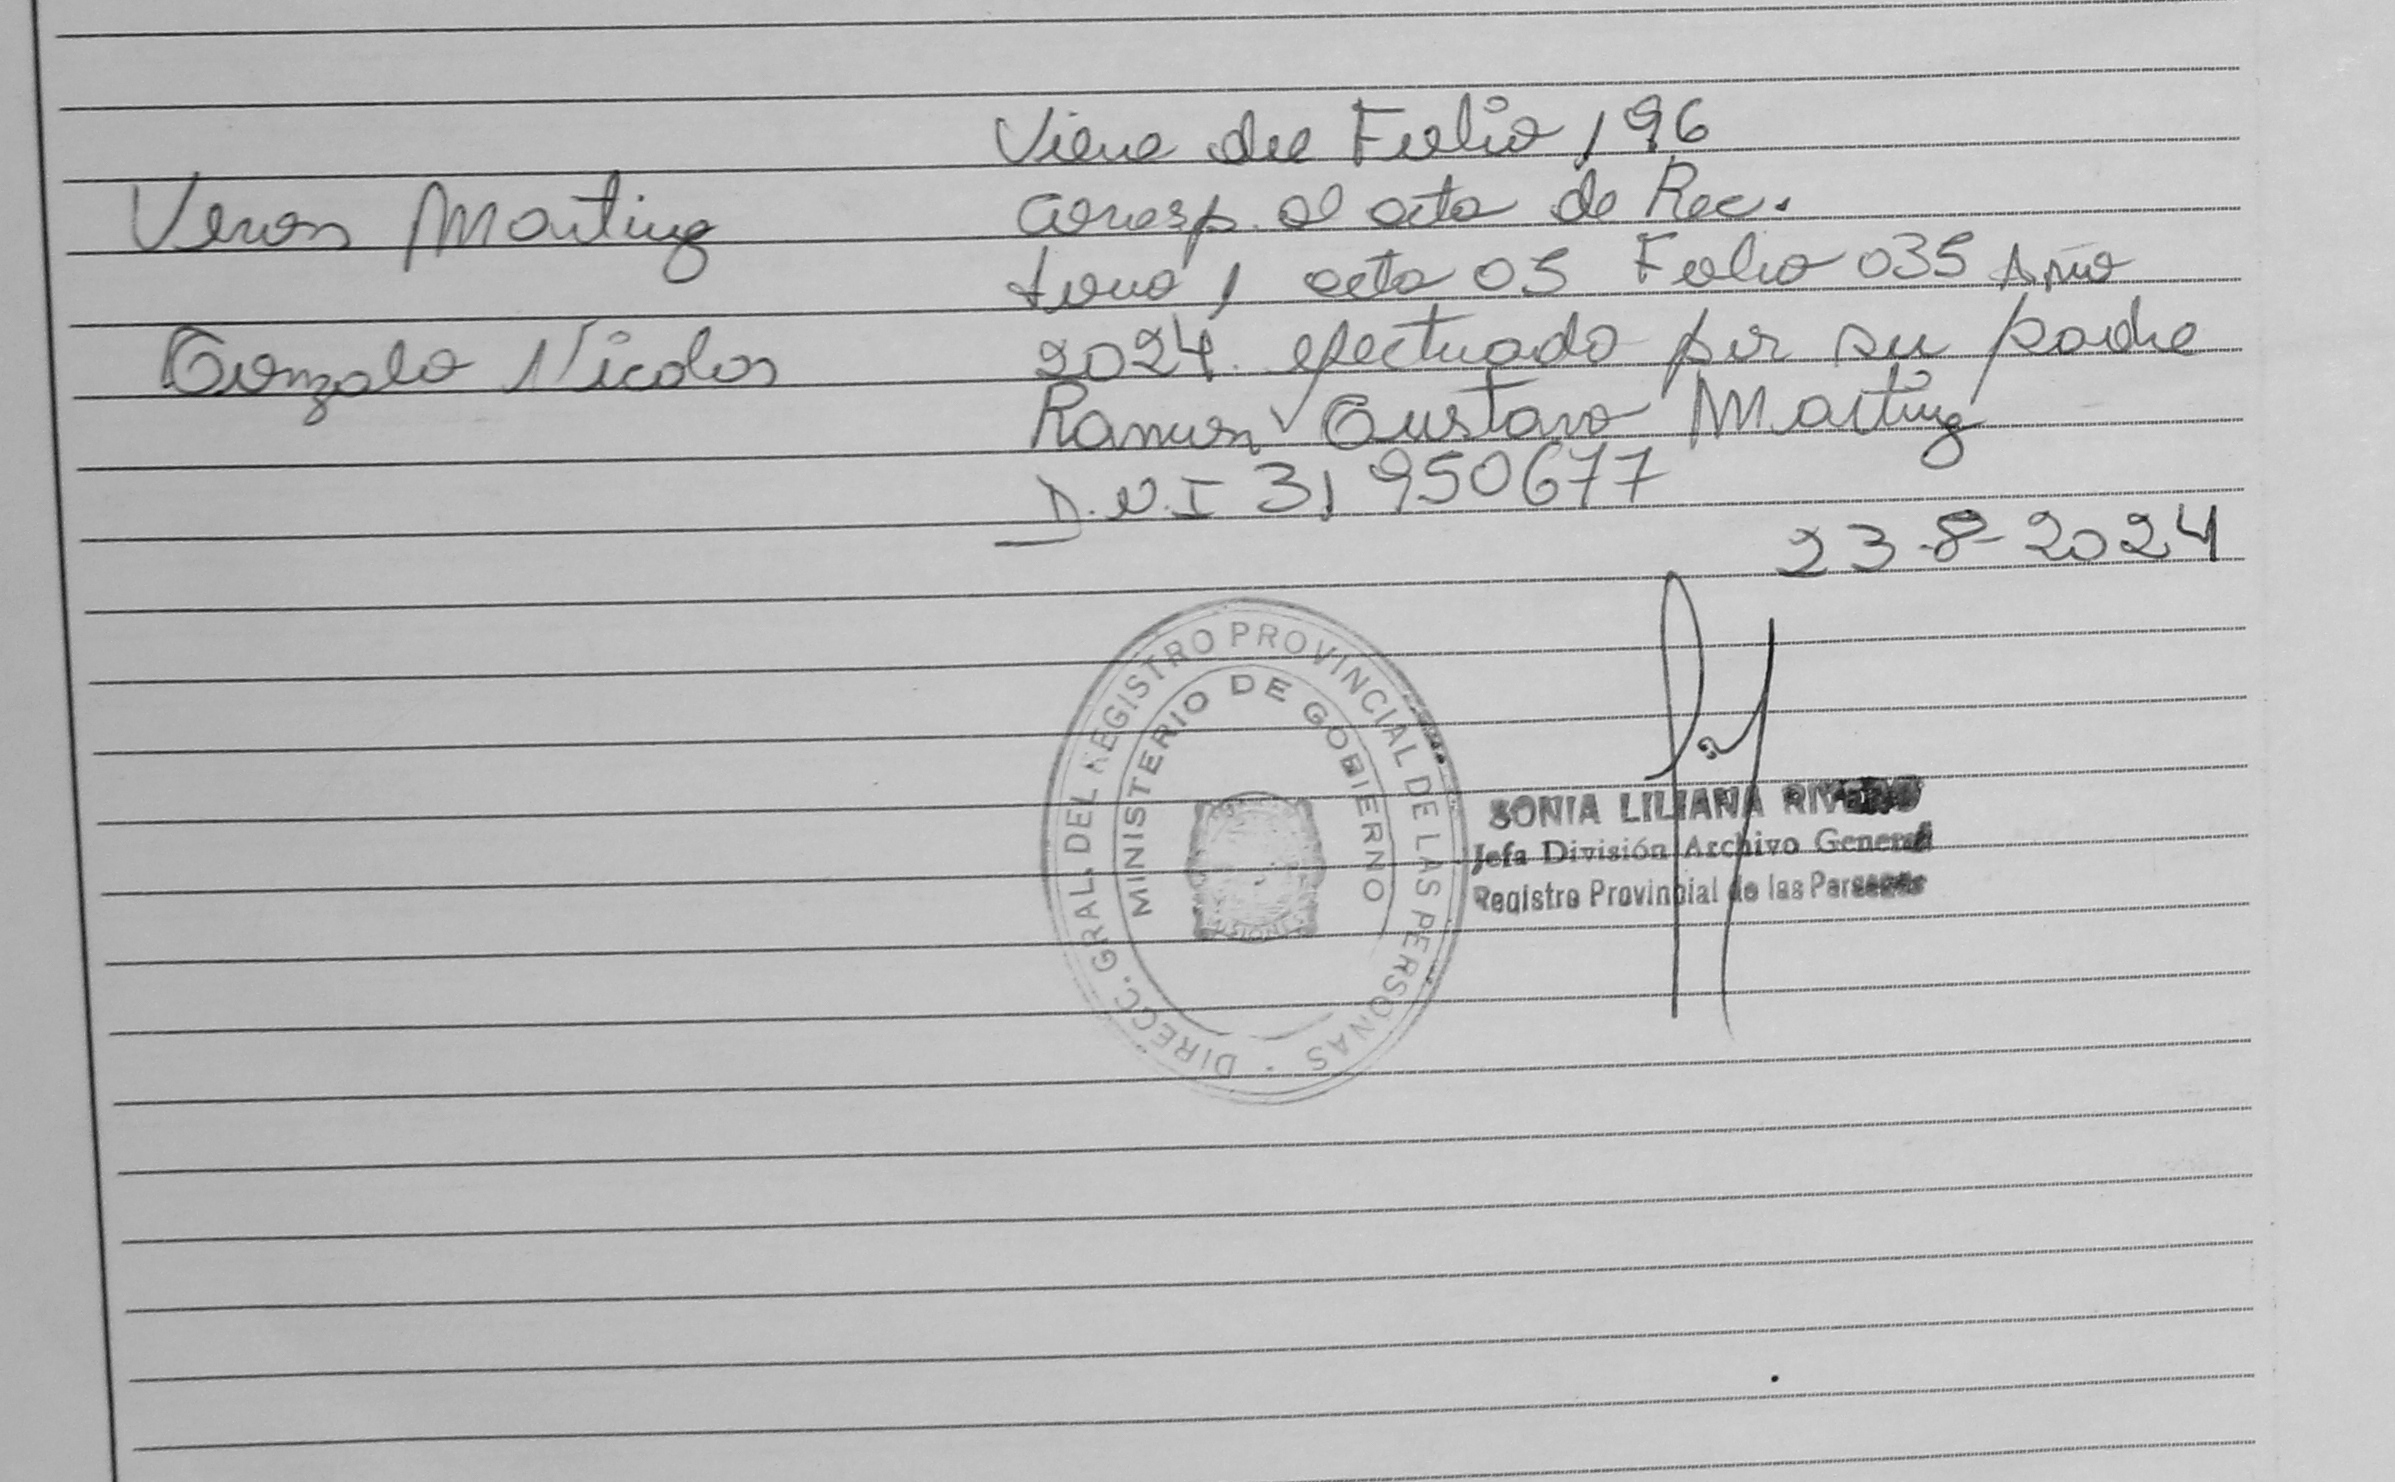 Viene del Folio 196
Veron Martinez
corresp. al acta de Rec.
tomo 1 acta 05 Folio 035 Año
Gonzalo Nicolas
2024. efectuado por su padre
Ramon Gustavo Martinez
D.N.I 31950677
23-8-2024
DIRECC. GRAL. DEL REGISTRO PROVINCIAL DE LAS PERSONAS
MINISTERIO DE GOBIERNO
MISIONES
SONIA LILIANA RIVERO
Jefa División Archivo General
Registro Provincial de las Personas